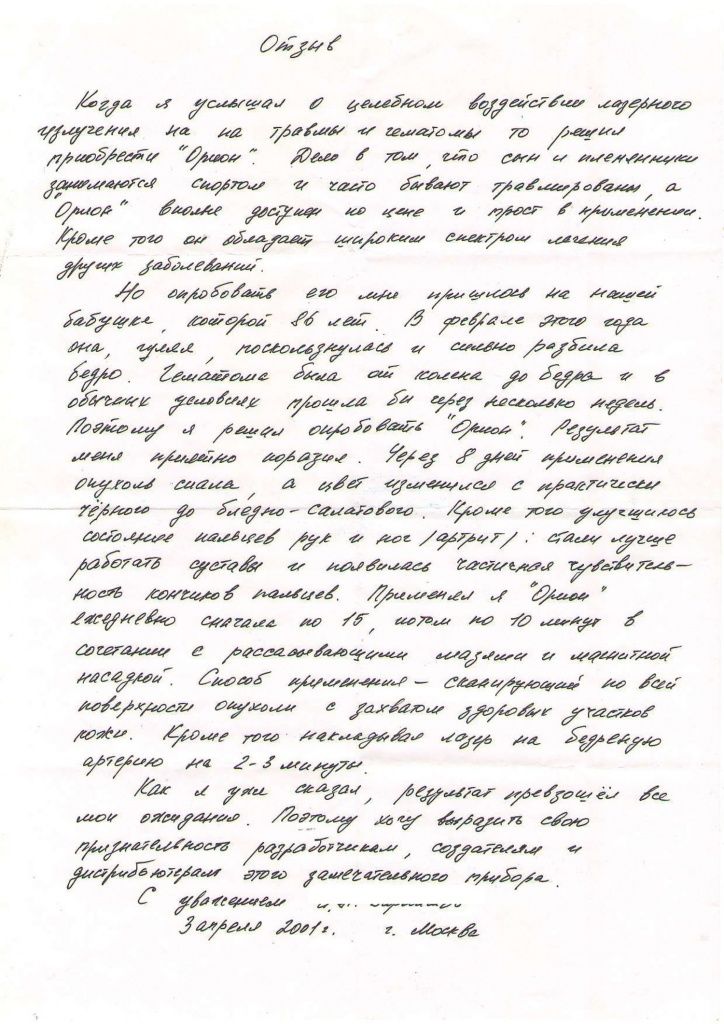 Отзыв
Когда я услышал о целебном воздействии лазерного
излучения на на травмы и гематомы то решил
приобрести "Орион". Дело в том, что сын и племянники
занимаются спортом и часто бывают травмированы, а
"Орион" вполне доступен по цене и прост в применении.
Кроме того он обладает широким спектром лечения
других заболеваний.
Но опробовать его мне пришлось на нашей
бабушке, которой 86 лет. В феврале этого года
она, гуляя, поскользнулась и сильно разбила
бедро. Гематома была от колена до бедра и в
обычных условиях прошла бы через несколько недель.
Поэтому я решил опробовать "Орион". Результат
меня приятно поразил. Через 8 дней применения
опухоль спала, а цвет изменился с практически
чёрного до бледно-салатового. Кроме того улучшилось
состояние пальцев рук и ног /артрит/: стали лучше
работать суставы и появилась частичная чувствитель-
ность кончиков пальцев. Применял я "Орион"
ежедневно сначала по 15, потом по 10 минут в
сочетании с рассасывающими мазями и магнитной
насадкой. Способ применения - сканирующий по всей
поверхности опухоли с захватом здоровых участков
кожи. Кроме того накладывал лазер на бедреную
артерию на 2-3 минуты.
Как я уже сказал, результат превзошёл все
мои ожидания. Поэтому хочу выразить свою
признательность разработчикам, создателям и
дистрибьютерам этого замечательного прибора.
С уважением
3 апреля 2001 г. г. Москва